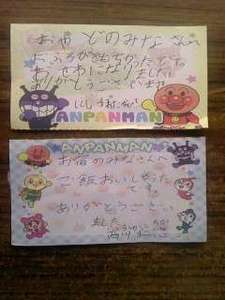 おやどのみなさんへ
おふろがきもちかったです
おせわになりました
ありがとうございました
ANPANMAN
ANPANMAN
お宿のみなさんへ
ご飯おいしかった
です。
ありがとうござい
ました